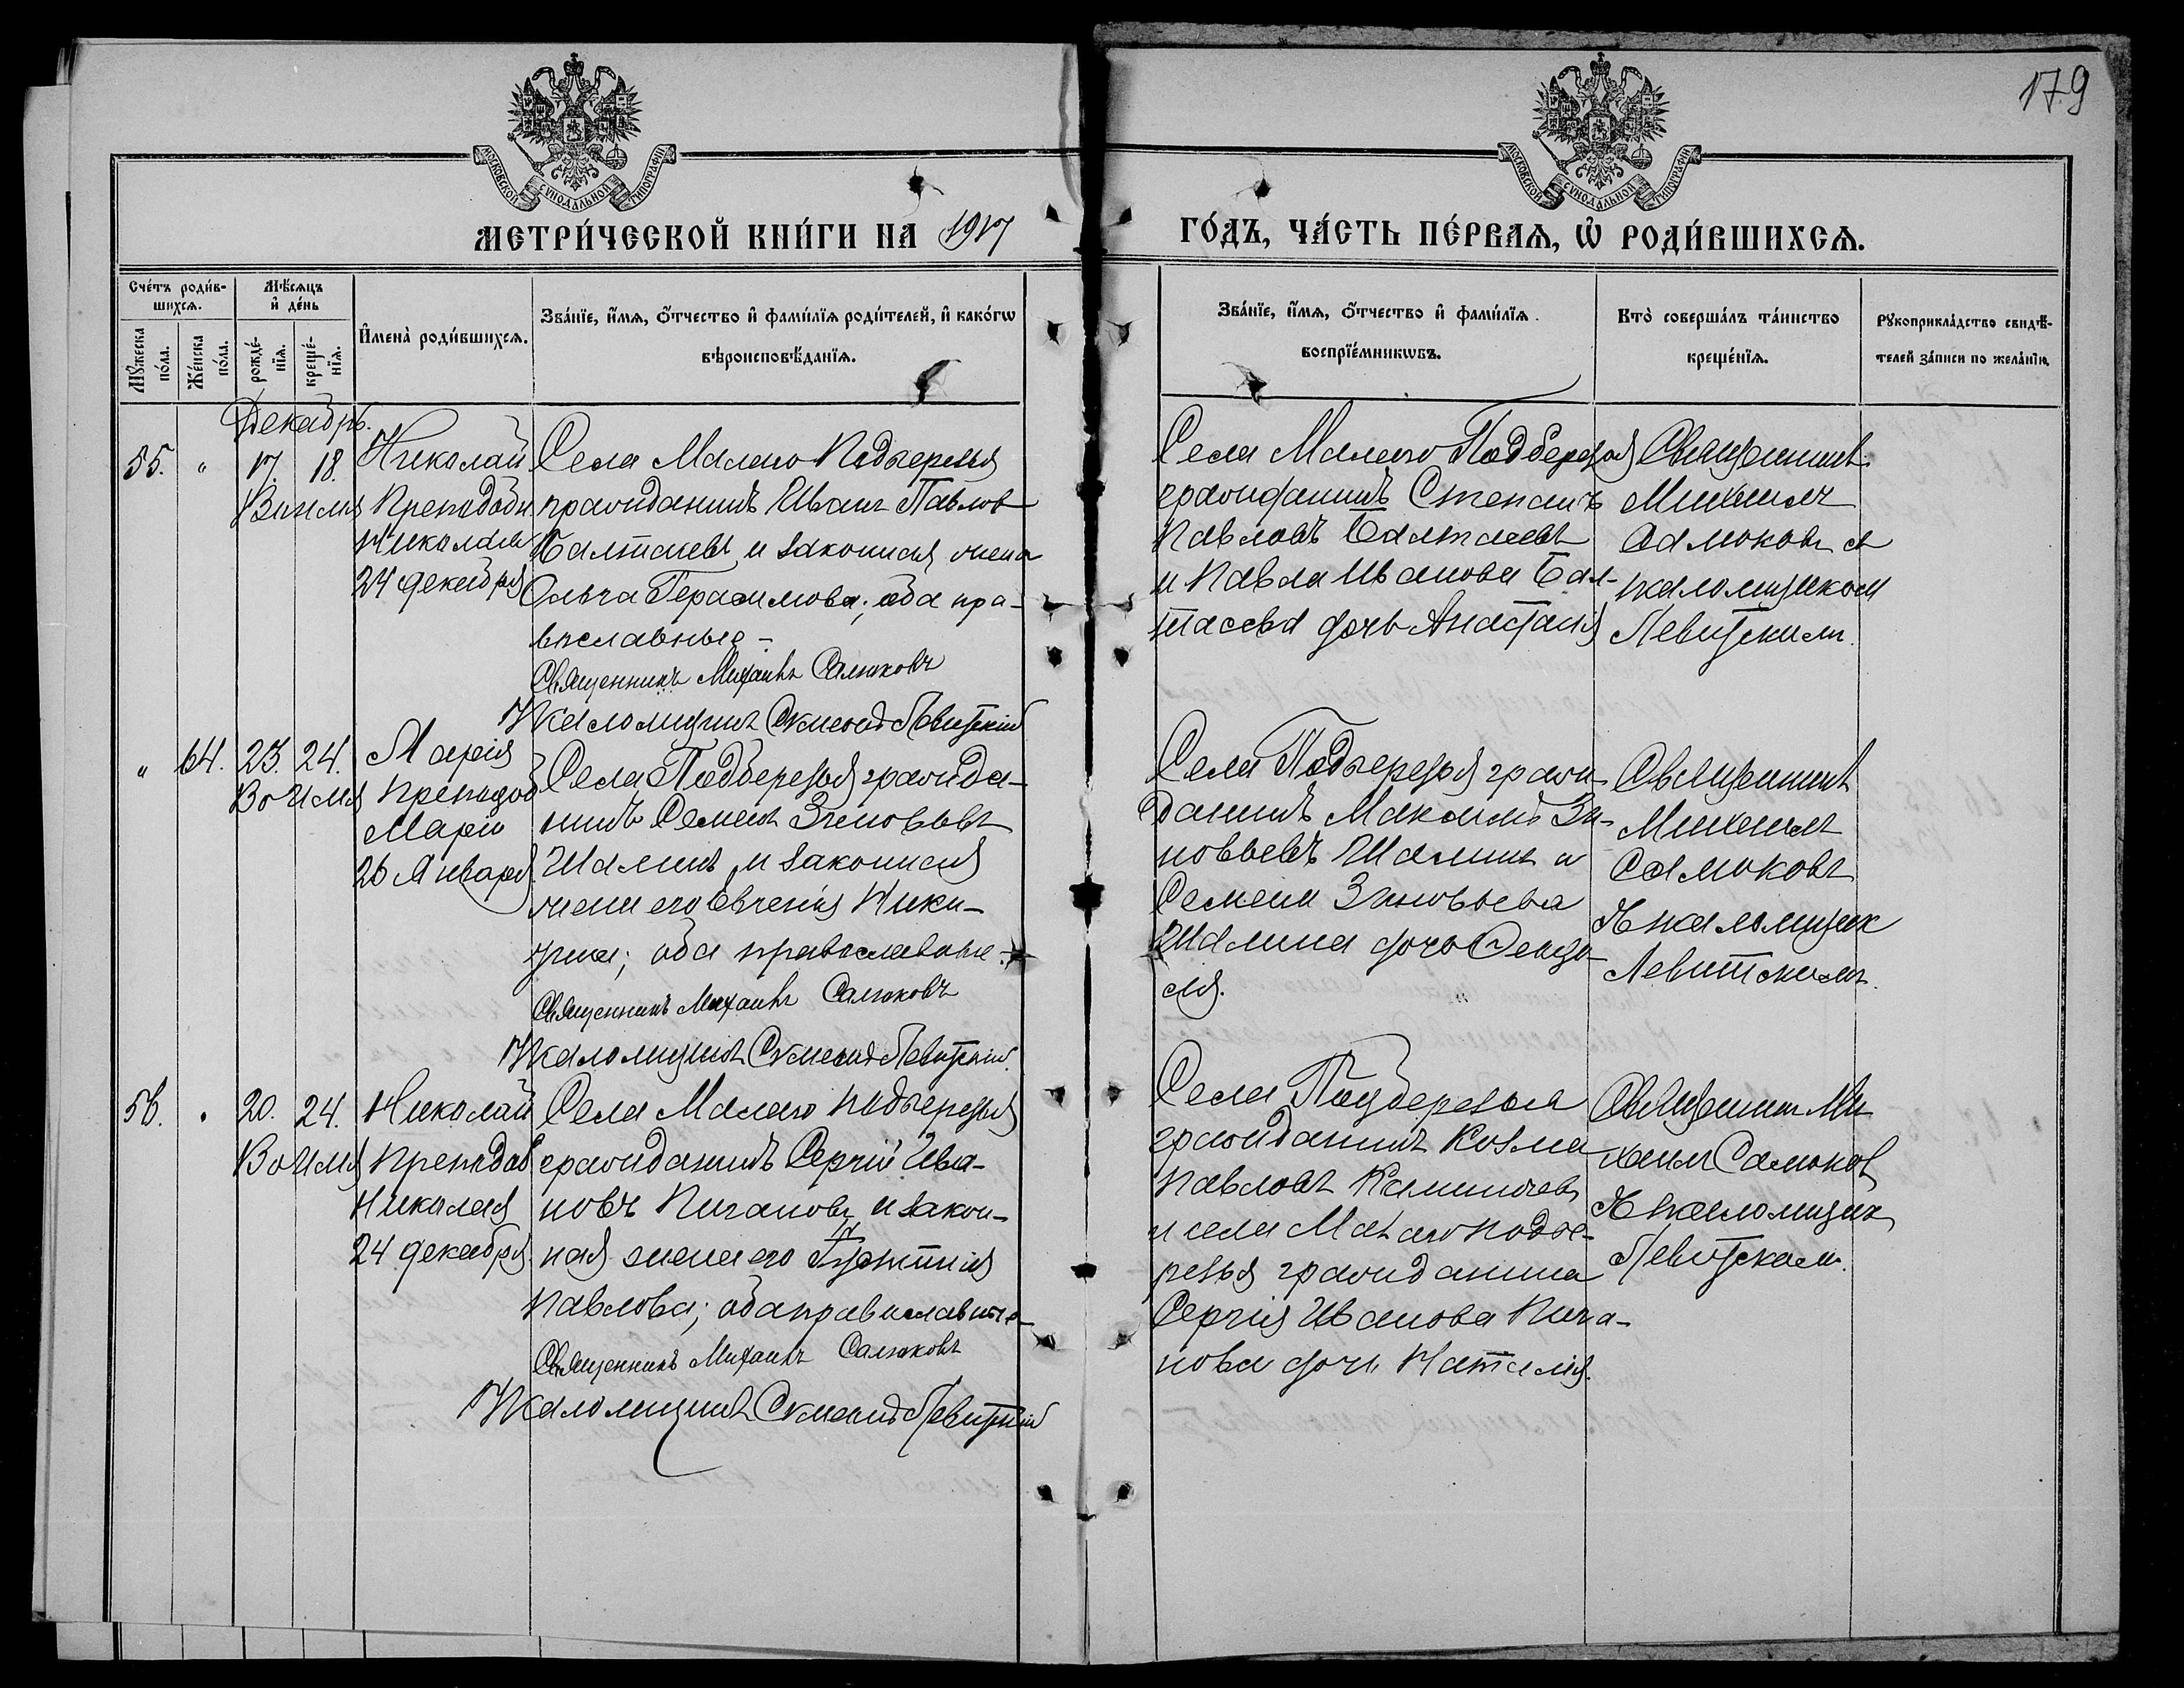 179
МОСКОВСКОЙ СѴНОДАЛЬНОЙ ТИПОГРАФІИ
МОСКОВСКОЙ СѴНОДАЛЬНОЙ ТИПОГРАФІИ
МЕТРИ́ЧЕСКОЙ КНИ́ГИ НА 1917 ГО́ДЪ, ЧА́СТЬ ПЕ́РВАѦ, Ѡ҆ РОДИ́ВШИХСѦ.
Сче́тъ роди́в-
шихсѧ.
Мꙋ́жеска по́ла.
Же́нска по́ла.
Мѣ́сѧцъ
и҆ де́нь
рожде́-
нїѧ.
креще́-
нїѧ.
И҆мена̀ роди́вшихсѧ.
Зва́нїе, и҆́мѧ, ѻ҆́тчество и҆ фами́лїѧ роди́телей, и҆ како́гѡ
вѣроисповѣ́данїѧ.
Зва́нїе, и҆́мѧ, ѻ҆́тчество и҆ фами́лїѧ
воспрїе́мникѡвъ.
Кто̀ соверша́лъ та́инство
креще́нїѧ.
Рꙋкоприкла́дство свидѣ́-
телей за́писи по жела́нїю.
Декабрь.
55. " 17. 18.
Во имя
Николай
Преподобн
Николая
24 декабря
Села Малаго Подберезья
гражданинъ Иванъ Павловъ
Балтаевъ и законная жена
Ольга Герасимова; оба пра-
вославные -
Священникъ Михаилъ Самоковъ
Псаломщикъ Левитскій
Села Малаго Подберезья
гражданинъ Степанъ
Павловъ Балтаевъ
и Павла Иванова Бал-
таева дочь Анастасія
Священникъ
Михаилъ
Самоковъ съ
псаломщиком
Левитскимъ.
" 64. 23. 24.
Во имя
Марія
Преподоб
Маріи
26 Января.
Села Подберезья гражда-
нинъ Семенъ Зиновьевъ
Шалинъ и законная
жена его Евгенія Ники-
; оба православные.
Священникъ Михаилъ Самоковъ
Псаломщикъ Левитскій.
Села Подберезья граж-
данинъ Максимъ Зи-
новьевъ Шалинъ и
Семена Зиновьева
Шалина дочь Феодо-
сія.
Священникъ
Михаилъ
Самоковъ
съ псаломщик
Левитскимъ.
56. " 20. 24.
Во имя
Николай
Преподоб
Николая
24 декабря.
Села Малаго Подберезья
гражданинъ Сергій Ива-
новъ Пигановъ и закон-
ная жена его
Павлова; оба православные
Священникъ Михаилъ Самоковъ
Псаломщикъ Левитскій
Села Подберезья
гражданинъ Козма
Павловъ
и села Малаго Подбе-
резья гражданина
Сергія Иванова Пига-
нова дочь Наталія.
Священникъ Ми-
хаилъ Самоков
съ псаломщик
Левитским.